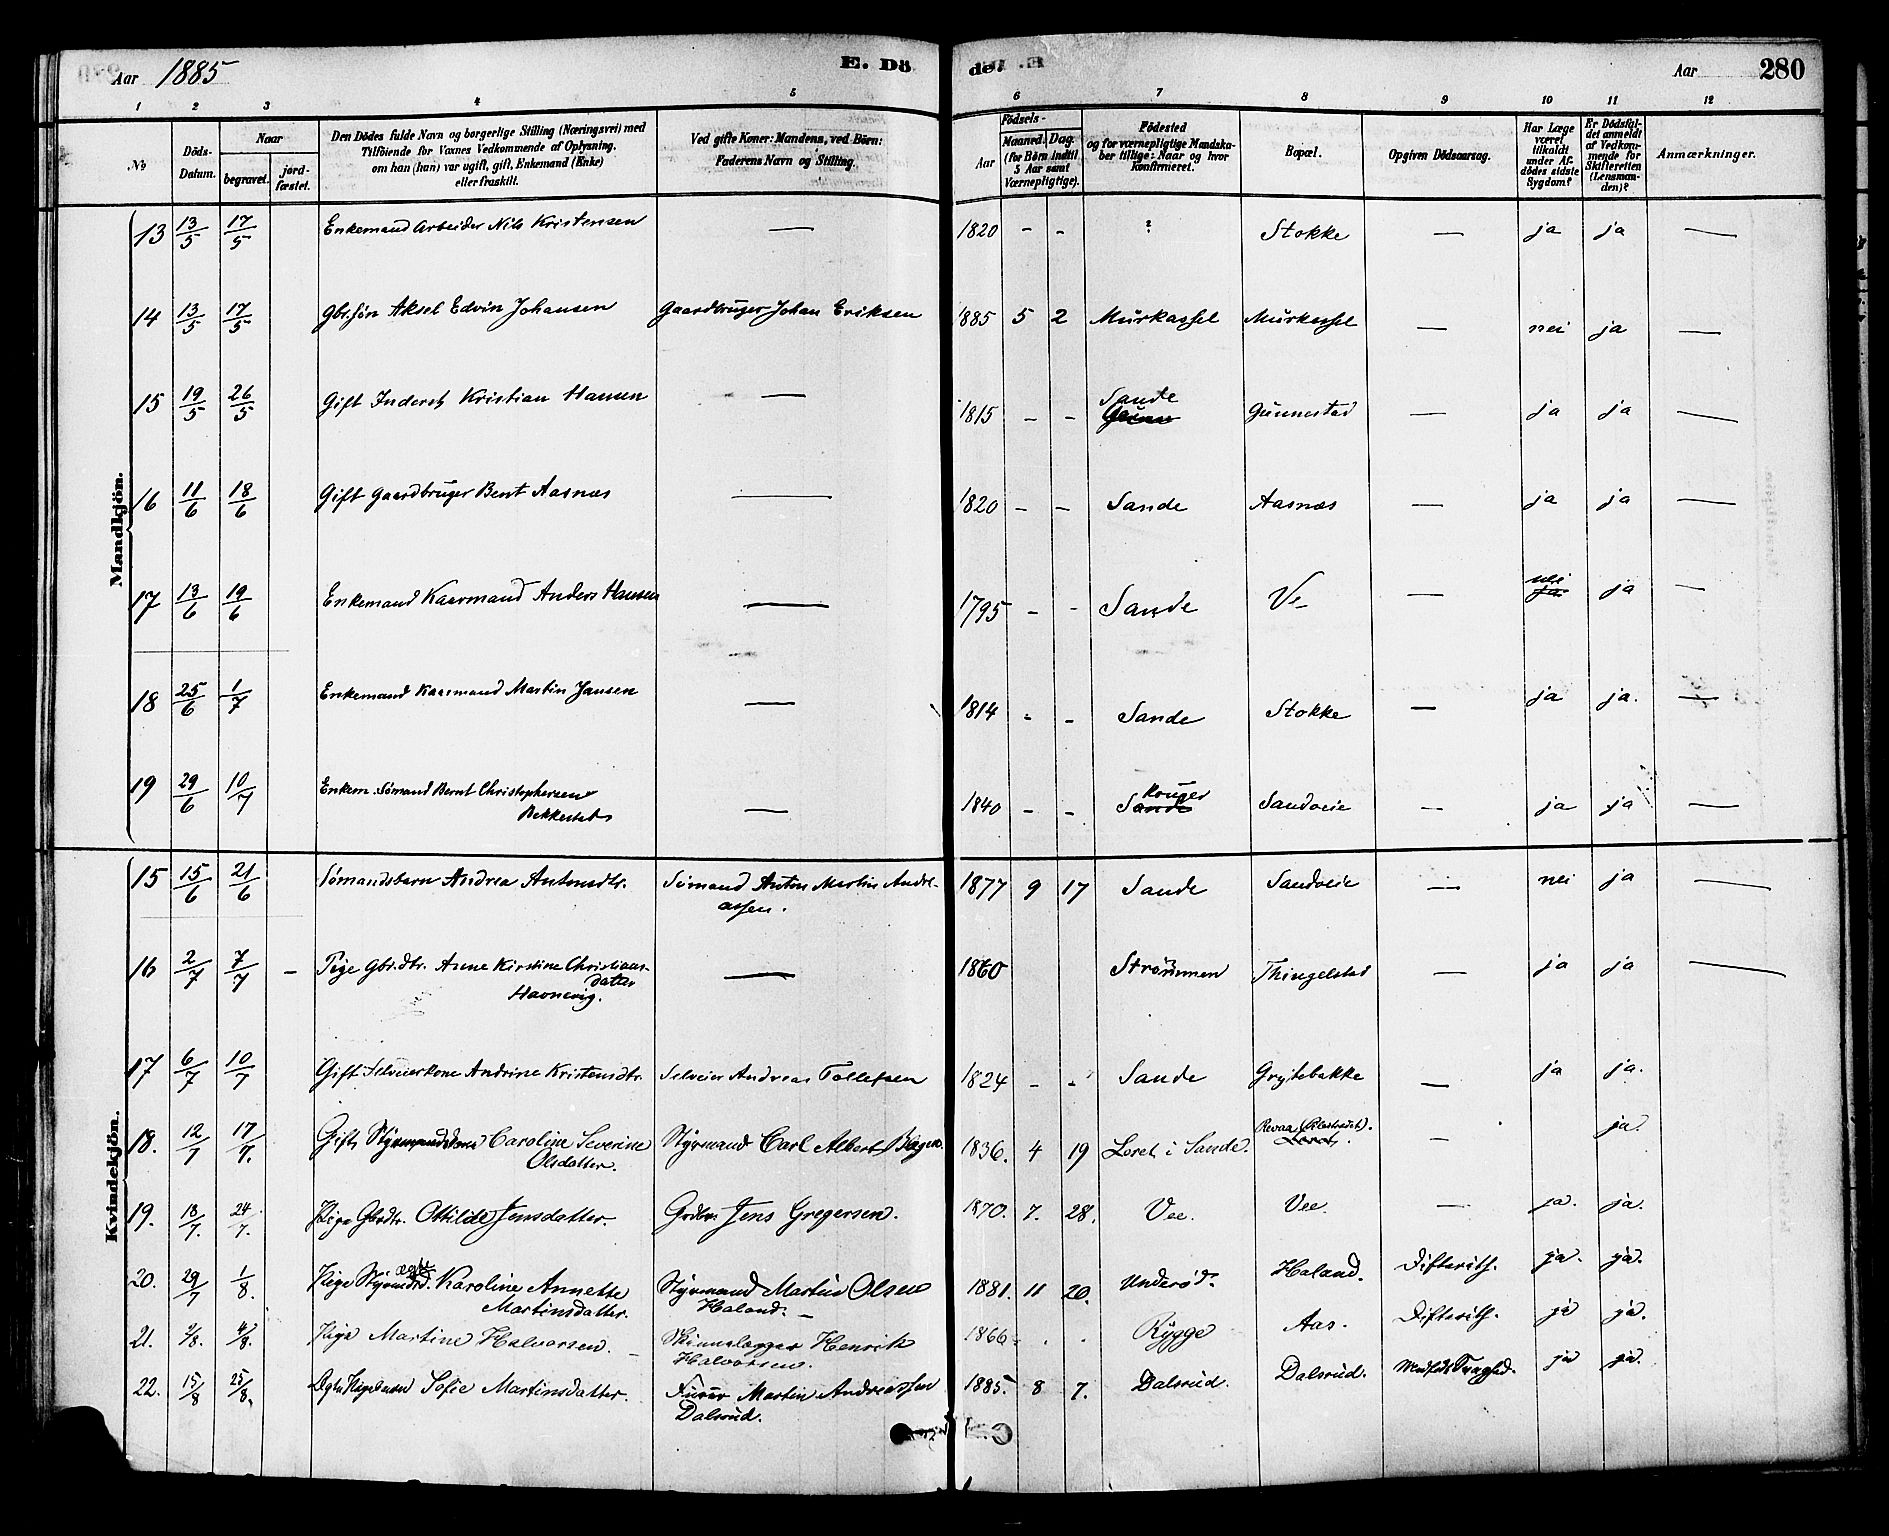 Aar 1885 E. Dö de. Aar 280
1 2 3 4 5 6 7 8 9 10 11 12
No
Döds-Datum.
Naar
begravet.
jord-fæstet.
Den Dödes fulde Navn og borgerlige Stilling (Næringsvei) med
Tilföiende for Voxnes Vedkommende af Oplysning,
om han (hun) var ugift, gift, Enkemand (Enke)
eller fraskilt.
Ved gifte Koner: Mandens, ved Börn:
Faderens Navn og Stilling.
Födsels-
Aar
Maaned. Dag
(for Börn indtil
5 Aar samt
Værnepligtige).
Födested
og for værnepligtige Mandska-
ber tillige: Naar og hvor
konfirmeret.
Bopæl.
Opgiven Dödsaarsag.
Har Læge
været
tilkaldt
under Af-
dödes sidste
Sygdom?
Er Dödsfal-
det anmeldt
af Vedkom-
mende for
Skifteretten
(Lensman-
den)?
Anmærkninger.
Mandkjön.
13 13/5 17/5 Enkemand Arbeider Nils Kristensen — 1820 - - ? Stokke — ja ja —
14 13/5 17/5 Gbr.søn Aksel Edvin Johansen Gaardbruger Johan Eriksen 1885 5 2 Murkassel Murkassel — nei ja —
15 19/5 26/5 Gift Inderst Kristian Hansen — 1815 - - Sande Gunnestad — ja ja —
16 11/6 18/6 Gift Gaardbruger Bent Aasnæs — 1820 - - Sande Aasnæs — ja ja —
17 13/6 19/6 Enkemand Kaarmand Anders Hansen — 1795 - - Sande Ve — nei ja ja —
18 25/6 1/7 Enkemand Kaarmand Martin Jansen — 1814 - - Sande Stokke — ja ja. —
19 29/6 10/7 Enkem. Sømand Bernt Christophersen
Bekkestad — 1840 - - Sande Sandveie — ja ja —
Kvindekjön.
15 15/6 21/6 Sømandsbarn Andrea Antonsdtr. Sømand Anton Martin Andre-
assen. 1877 9 17 Sande Sandveie — nei ja —
16 2/7 7/7 - Pige Gbr.dtr. Anne Kirstine Christians-
datter
Havnevig. — 1860 Strømmen Thingelstad — ja ja —
17 6/7 10/7 Gift Selveierkone Andrine Kristensdtr. Selveier Andreas Tollefsen 1824 - - Sande Grytebakke — ja ja.
18. 12/7 17/7. Gift Styrmandskone Caroline Severine
Olsdatter. Styrmand Carl Albert Bøgen. 1836. 4 19 Loret i Sande. Revaa Loret. — ja.
19. 18/7. 24/7. Pige Gbrdtr. Ottilde Jensdatter. Grdbr. Jens Gregersen. 1870. 7. 28. Vee. Vee. — ja. ja.
20. 29/7 1/8. Pige Styrmd. ægte Karoline Annette
Martinsdatter. Styrmand Martin Olsen
Haland. 1881. 11 20. Underød. Haland. Difterith. ja. ja.
21. 2/8. 4/8. Pige Martine Halvorsen. Skinnelægger Henrik
Halvorsen. 1866 . . Rygge Aas. Difterith. ja ja.
22. 15/8 25/8. Ægte Pigebarn Sofie Martinsdatter. Furer Martin Andreassen
Dalsrud. 1885. 8 7. Dalsrud. Dalsrud. Medfødt Svaghed. ja ja.